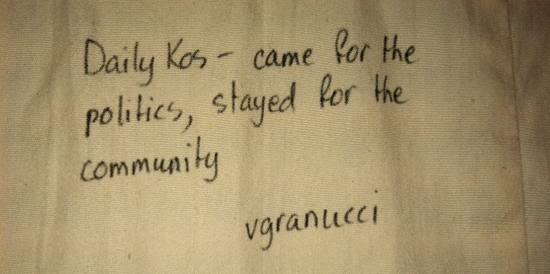 Daily Kos - came for the
politics, stayed for the
community
vgranucci